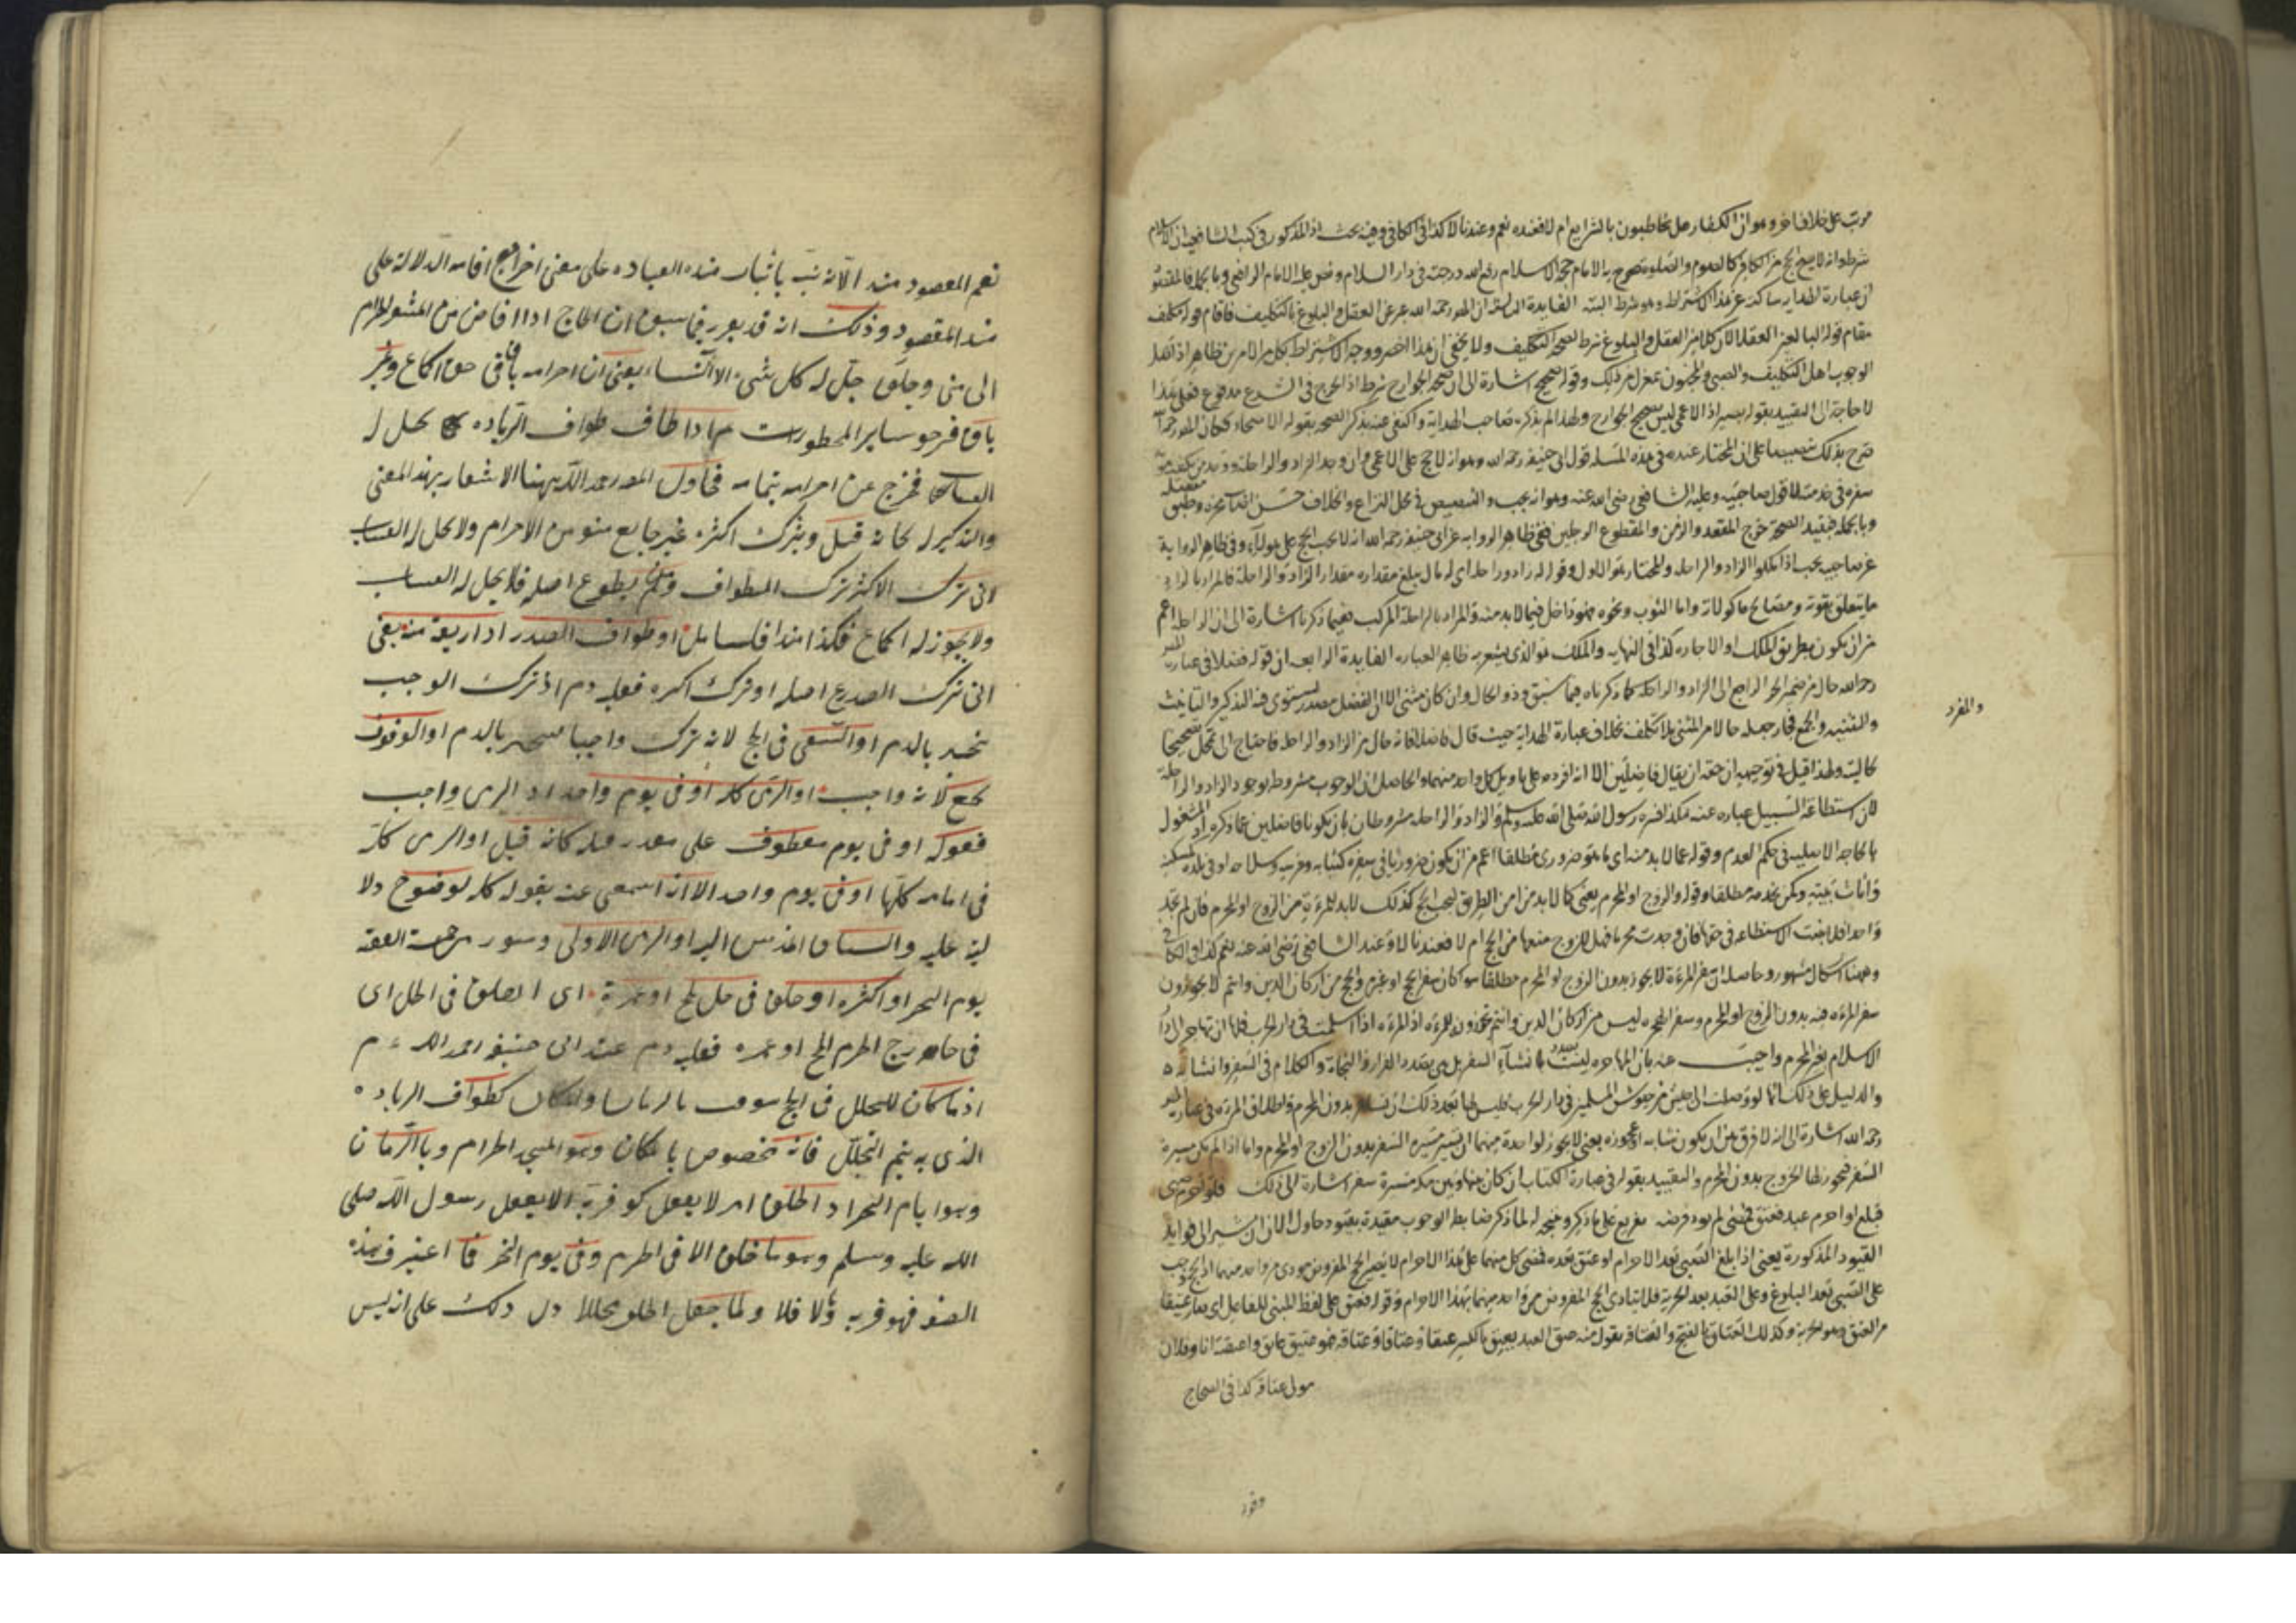 مرتب على خلاف اخر وهو ان الكفار هل يخاطبون بالشرايع ام لا فعنده نعم وعندنا لا كذا فى الكافى وفيه بحث اذ المذكور فى كتب الشافعية ان الاسلام
شرط وانه لا يصح الحج من الكافر كالصوم والصلوة صرح به الامام حجة الاسلام رفع الله درجته فى دار السلام ونص عليه الامام الرافعى وبالجملة
ان عبارة الهداية ساكتة عن هذا الاشتراط وهو شرط البتة الفايدة الثالثة ان المص رحمه الله عبر عن العقل والبلوغ بالتكليف فاقام قوله مكلف
مقام قوله البالغين العقلاء لان كلا من العقل والبلوغ شرط لصحة التكليف ولا يخفى ان هذا اخصر ووجه الاشتراط بكل من الامرين ظاهر اذ
الوجوب اهل التكليف والصبى والمجنون بمعزل من ذلك وقوله صحيح اشارة الى ان صحة الجوارح شرط اذ الحرج فى الشرع مدفوع فعلى هذا
لا حاجة الى التقييد بقوله بصير اذ الاعمى ليس بصحيح الجوارح ولهذا لم يذكره صاحب الهداية واكتفى عنه بذكر الصحة بقوله الاصحاء فكان المص رحمه
صرح بذلك تنصيصا على ان المختار عنده فى هذه المسئلة قول ابى حنيفة رحمه الله وهو انه لا حج على الاعمى وان وجد الزاد والراحلة ووجد من يكفيه مؤنة
سفره فى خدمته لا قول صاحبيه وعليه الشافعى رضى الله عنه وهو انه يجب والتنصيص فى محل النزاع والخلاف حسن
وبالجملة فبقيد الصحة خرج المقعد والزمن والمقطوع الرجلين ففى ظاهر الرواية عن ابى حنيفة رحمه الله انه لا يجب الحج على هؤلاء وفى ظاهر الرواية
عن صاحبيه يجب اذا ملكوا الزاد والراحلة والمختار هو الاول وقوله له زاد وراحلة اى له مال يبلغ مقداره مقدار الزاد والراحلة فالمراد بالزاد
ما يتعلق بقوته ومصالح ماكولاته واما الثوب ونحوه فهو داخل فيما لا بد منه والمراد بالراحلة المركب ففيما ذكرنا اشارة الى ان الراحلة اعم
من ان يكون بطريق الملك او الاجارة كذا فى النهاية والملك هو الذى يشعر به ظاهر العبارة الفايدة الرابعة ان قوله فضلا فى عبارة المص
رحمه الله حال من ضمير الجر الراجع الى الزاد والراحلة كما ذكرناه فيما سبق وذو الحال وان كان مثنى الا ان الفضل مصدر يستوى فيه التذكير والتانيث
والتثنية والجمع فجاز جعله حالا من المثنى بلا تكلف بخلاف عبارة الهداية حيث قال فاضلا فانه حال من الزاد والراحلة فاحتاج الى تمحل
والمفرد
ولهذا قيل فى توجيهه ان حقه ان يقال فاضلين الا انه افرده على تاويل كل واحد منهما والحاصل ان الوجوب مشروط بوجود الزاد والراحلة
لان استطاعة السبيل عبارة عنه هكذا فسره رسول الله صلى الله عليه وسلم والزاد والراحلة مشروطان بان يكونا فاضلين عما ذكره اذ المشغول
بالحاجة الاصلية فى حكم العدم وقوله عما لا بد منه اى ما هو ضرورى مطلقا اعم من ان يكون ضروريا فى سفره كثيابه وفرسه وسلاحه او فى بلده كمسكنه
واثاث بيته ويمكن خدمة مطلقا وقوله والزوج او المحرم يعنى كما لا بد من امن الطريق ليجب الحج كذلك لا بد للمرءة من الزوج او المحرم فان لم تجد
واحدا فلا تثبت الاستطاعة فى حقها فان وجدت محرما فهل للزوج منعها من الحج ام لا فعندنا لا وعند الشافعى رضى الله عنه نعم كذا فى الكافى
وههنا اشكال مشهور وحاصله ان سفر المرءة لا يجوز بدون الزوج او المحرم مطلقا سواء كان سفر الحج او غيره والحج من اركان الدين وانتم لا تجوزون
سفر المرءة فيه بدون الزوج او المحرم وسفر الهجرة ليس من اركان الدين وانتم تجوزونه للمرءة اذ المرءة اذا اسلمت فى دار الحرب فلها ان تهاجر الى دار
الاسلام بغير المحرم واجيب عنه بان المهاجرة ليست بانشاء السفر بل هى بصدد الفرار والنجاة والكلام فى السفر وانشائه
والدليل على ذلك انها لو وصلت الى جيش من جيوش المسلمين فى دار الحرب فليس لها بعد ذلك ان تسافر بدون المحرم واطلاق المرءة فى عبارة المص
رحمه الله اشارة الى انه لا فرق بين ان يكون شابة او عجوزة يعنى لا يجوز لواحدة منهما ان تسير مسيرة السفر بدون الزوج او المحرم واما اذا لم يكن مسيرة
السفر فيجوز لها الخروج بدون المحرم والتقييد بقوله فى عبارة الكتاب ان كان بينها وبين مكة مسيرة سفر اشارة الى ذلك فلو احرم صبى
فبلغ او احرم عبد فعتق فمضى لم يود فرضه تفريع على ما ذكره ونتيجة له لما ذكر ضابط الوجوب مقيدة بقيود حاول الان ان يشير الى فوايد
القيود المذكورة يعنى اذا بلغ الصبى بعد الاحرام او عتق بعده فمضى كل منهما على هذا الاحرام لا يصير الحج المفروض مودى من واحد منهما
على الصبى بعد البلوغ وعلى العبد بعد الحرية فلا يتادى الحج المفروض من واحد منهما بهذا الاحرام وقوله فعتق على لفظ المبنى للفاعل اى صار عتيقا
من العتق وهو الحرية وكذلك العتاق بالفتح والعتاقة تقول منه عتق العبد يعتق بالكسر عتقا وعتاقا وعتاقة فهو عتيق وعاتق واعتقته انا وفلان
مولى عتاقة كذا فى الصحاح
نعم المقصود منه الا انه نبه باثبات هذه العبادة على معنى اخر مع افادته الدلالة على
هذا المقصود وذلك انه قد تقرر فيما سبق ان الحاج اذا افاض من المشعر الحرام
الى منى وحلق حل له كل شىء الا النساء يعنى ان احرامه باق فى حق الجماع وغير
باق فى حق ساير المحظورات ثم اذا طاف طواف الزيادة يحل له
النساء فخرج عن احرامه بتمامه فحاول المص رحمه الله ههنا الاشعار بهذا المعنى
والتذكير له كانه قيل وبترك اكثره غير جايع هو من الاحرام ولا يحل له النساء
اى ترك الاكثر ترك الطواف ولم يطوع اصلا فلا يحل له النساء
ولا يجوز له الجماع فكذا هذا فليتامل او طواف الصدر او اربعة منه يعنى
ان ترك الصدر اصلا او ترك اكثره فعليه دم اذ ترك الوجب
يجبر بالدم او السعى فى الحج لانه ترك واجبا فيجبر بالدم او الوقوف
بجمع لانه واجب او الرمى كله او فى يوم واحد اذ الرمى واجب
فقوله او فى يوم معطوف على مقدر قبله كانه قيل او الرمى كله
فى ايامه كلها او فى يوم واحد الا انه استغنى عنه بقوله كله لوضوح دلا
لته عليه والسباق او الرمى الاولى وهو رمى جمرة العقبة
يوم النحر او اكثره او حلق فى حل لحج او عمرة اى ا لحلق فى الحل اى
فى خارج الحرم لحج او عمرة فعليه دم عند ابى حنيفة رحمه الله
اذ ما كان للتحلل فى الحج موقت بالزمان والمكان كطواف الزيادة
الذى به يتم التحلل فانه مخصوص بالمكان وهو المسجد الحرام وبالزمان
وهو ايام النحر اذ الحلق امر لا يعقل كونه قربة الا بفعل رسول الله صلى
الله عليه وسلم وهو ما حلق الا فى الحرم وفى يوم النحر فما اعتبر فى هذه
الصفة فهو قربة والا فلا ولما جعل الحلق محللا دل ذلك على انه ليس